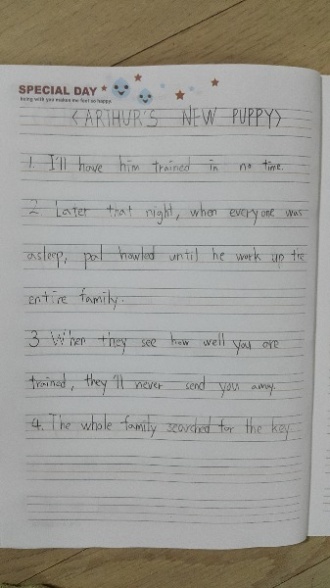 SPECIAL DAY
being with you makes me feel so happy.
<ARTHUR'S NEW PUPPY>
1. I'll have him trained in no time.
2 Later that night, when everyone was
asleep, pal howled until he work up the
entire family.
3 When they see how well you are
trained, they'll never send you away.
4. The whole family searched for the key